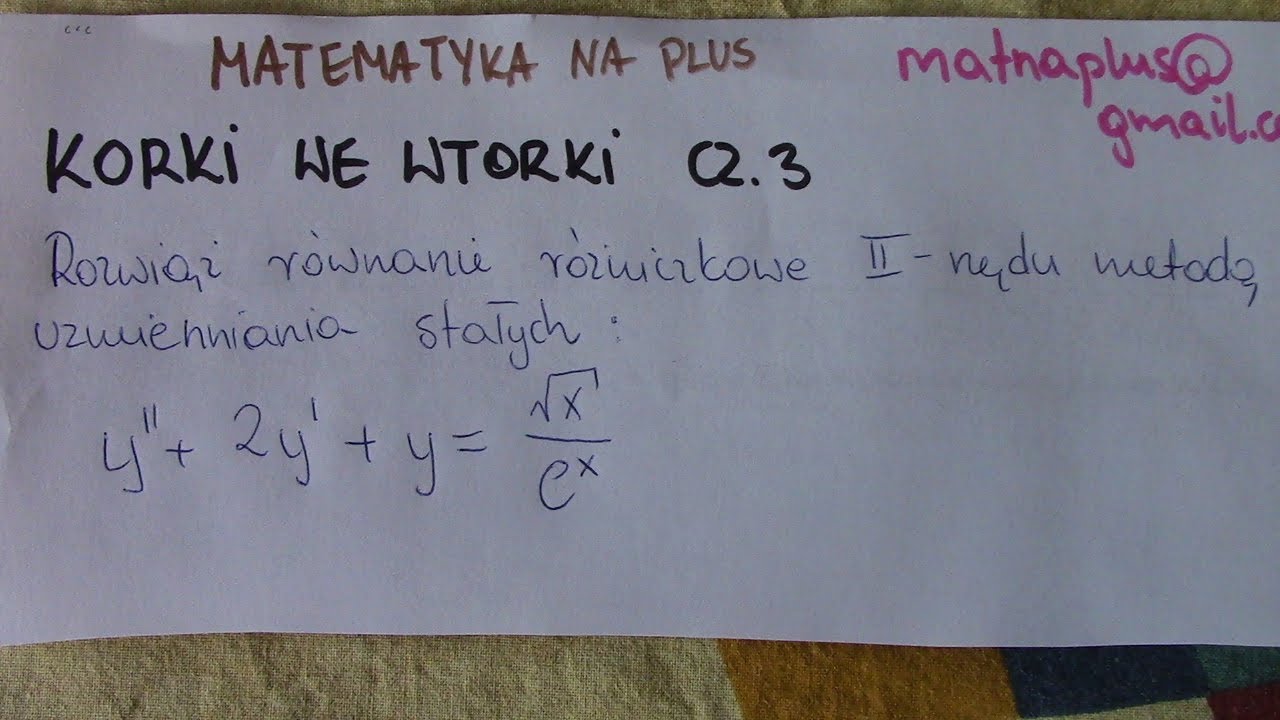 MATEMATYKA NA PLUS
matnaplus@
gmail.co
KORKI WE WTORKI CZ.3
Rozwiąż równanie różniczkowe II-rzędu metodą
uzmienniania stałych:
y'' + 2y' + y = √x / e^x